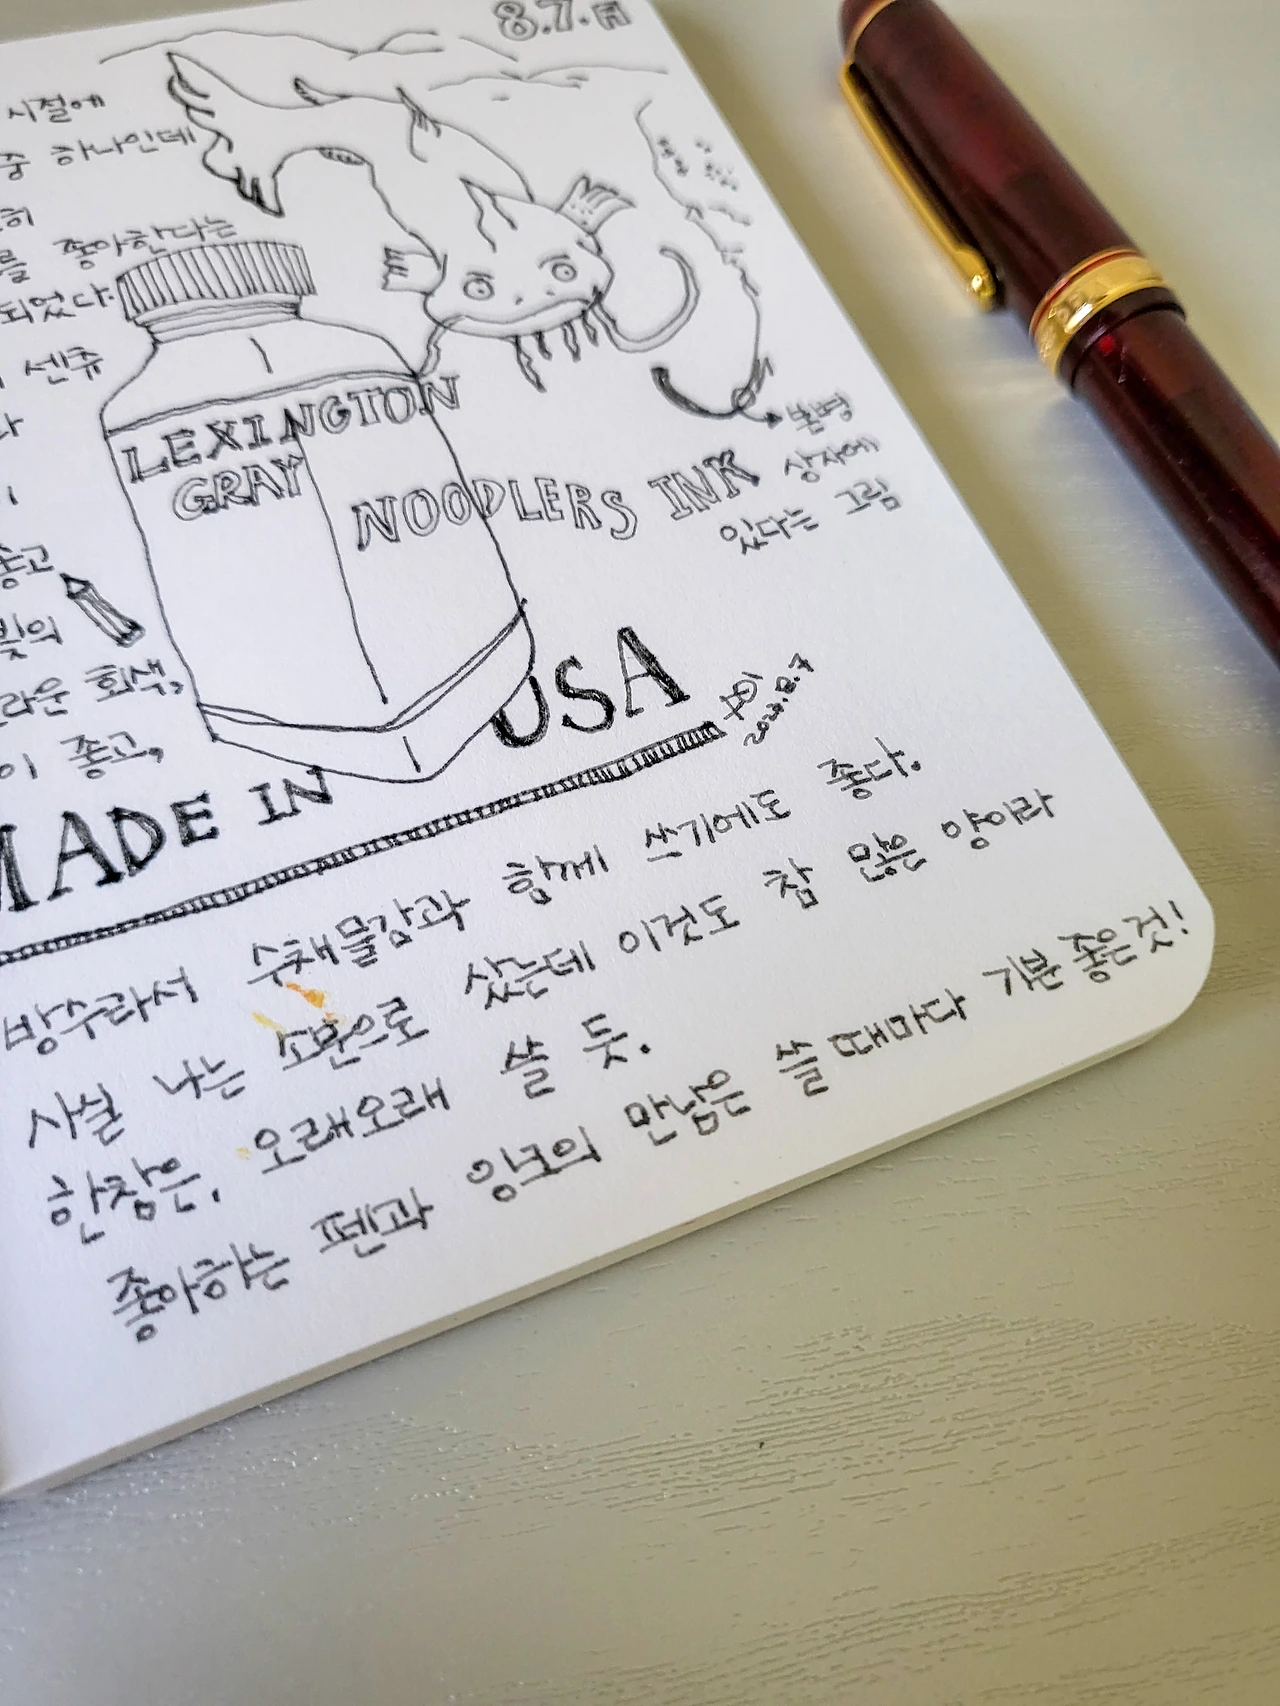 8.7.月
시절에
중 하나인데
히
를 좋아한다는
되었다.
센쥬
좋고
빛의
라운 회색,
이 좋고,
LEXINGTON
GRAY
NOODLERS INK
본병
상자에
있다는 그림
MADE IN USA
2023.8.7
방수라서 수채물감과 함께 쓰기에도 좋다.
사실 나는 소분으로 샀는데 이것도 참 많은 양이라
한참은, 오래오래 쓸 듯.
좋아하는 펜과 잉크의 만남은 쓸 때마다 기분 좋은 것!